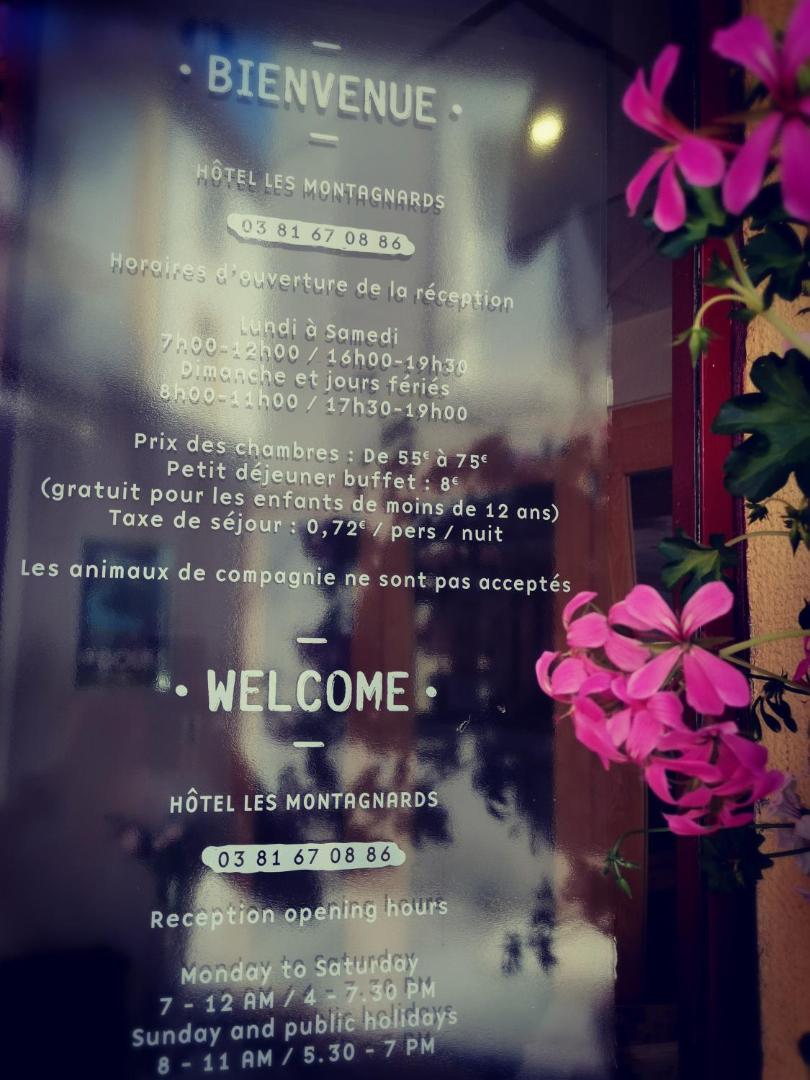 • BIENVENUE •
HÔTEL LES MONTAGNARDS
03 81 67 08 86
Horaires d'ouverture de la réception
Lundi à Samedi
7h00-12h00 / 16h00-19h30
Dimanche et jours fériés
8h00-11h00 / 17h30-19h00
Prix des chambres : De 55€ à 75€
Petit déjeuner buffet : 8€
(gratuit pour les enfants de moins de 12 ans)
Taxe de séjour : 0,72€ / pers / nuit
Les animaux de compagnie ne sont pas acceptés
• WELCOME •
HÔTEL LES MONTAGNARDS
03 81 67 08 86
Reception opening hours
Monday to Saturday
7 - 12 AM / 4 - 7.30 PM
Sunday and public holidays
8 - 11 AM / 5.30 - 7 PM